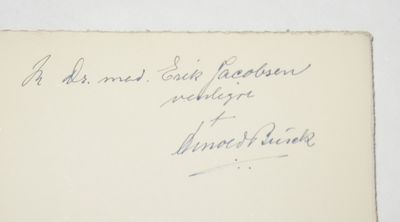 Dr. med. Erik Jacobsen
venligst
f
Arnold Busck